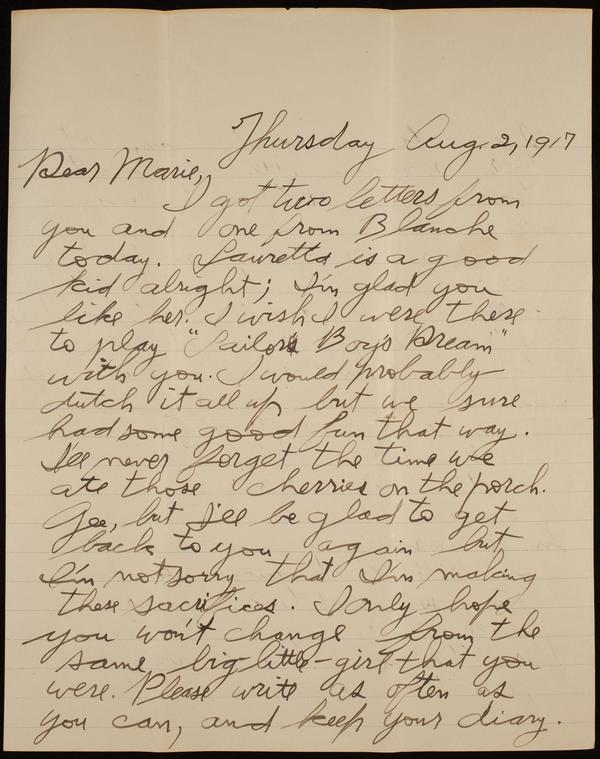 Thursday Aug. 2, 1917
Dear Marie,
I got two letters from
you and one from Blanche
today. Lauretta is a good
kid alright; I'm glad you
like her. I wish I were there
to play "Sailors Boy's Dream"
with you. I would probably
dutch it all up but we sure
had some good fun that way.
I'll never forget the time we
ate those cherries on the porch.
Gee, but I'll be glad to get
back to you again but
I'm not sorry that I'm making
these sacrifices. I only hope
you won't change from the
same big little-girl that you
were. Please write as often as
you can, and keep your diary.